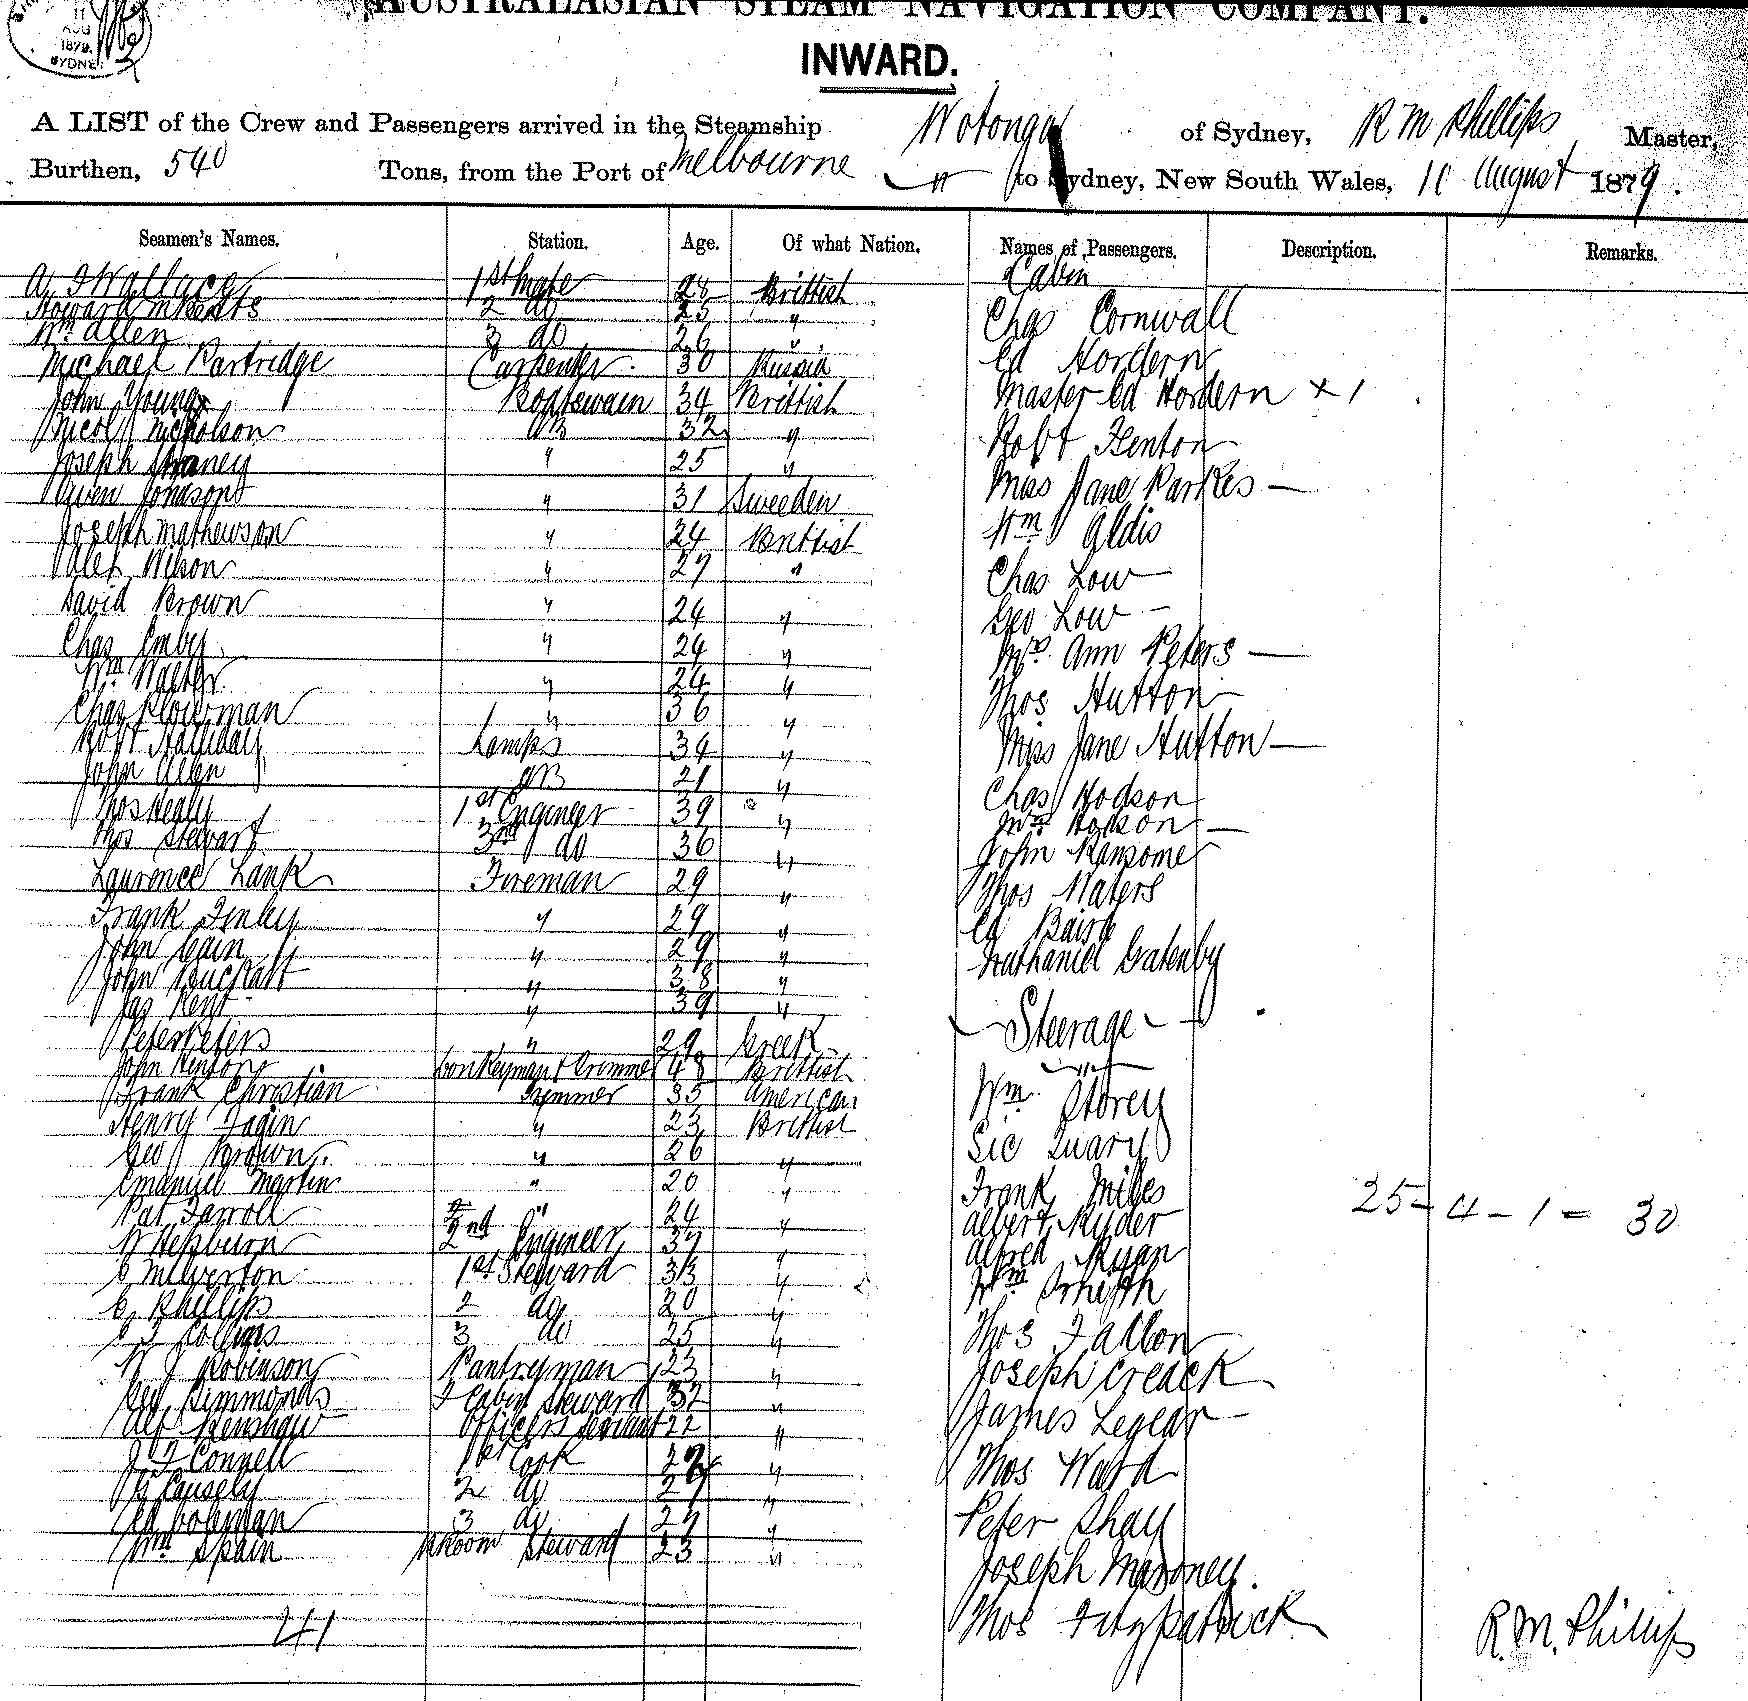 11
AUG
1879.
SYDNEY
AUSTRALASIAN STEAM NAVIGATION COMPANY.
INWARD.
A LIST of the Crew and Passengers arrived in the Steamship Wotonga of Sydney, R M Phillips Master,
Burthen, 540 Tons, from the Port of Melbourne to Sydney, New South Wales, 11 August 1879.
Seamen's Names. Station. Age. Of what Nation. Names of Passengers. Description. Remarks.
A Wallace 1st Mate 28 Brittish Cabin
Howard 2 do 25 "
Wm Allen 3 do 26 " Chas Cornwall
Michael Partridge Carpenter 30 Russia Ed Hordern
John Young Boatswain 34 Brittish Master Ed Hordern x 1
Nicol Nicholson AB 32 " Robt Fenton
Joseph " 25 " Miss Jane Parkes
" 31 Sweeden
Joseph Mathewson " 24 Brittish Wm Aldis
Alex Wilson " 27 " Chas Low
David Brown " 24 " Geo Low
Chas Emby " 24 " Mrs Ann Peters
Wm Walter " 24 "
Chas Plowman " 36 " Thos Hutton
Robt Halliday Lamps 34 " Miss Jane Hutton
John Allen AB 21 "
Thos Healy 1st Engineer 39 " Chas Hodson
Thos Stewart 3rd do 36 " Mrs Hodson
John Ransome
Laurence Lank Fireman 29 " Thos Waters
Frank Finley " 29 " Ed Baird
John Cain " 29 " Nathaniel Gatenby
John " 38 "
Jas Kent " 39 " Steerage
Peter Peters " 29 Greek
John Kenton Donkeyman & Trimmer 48 Brittish
Frank Christian Trimmer 35 American Wm Storey
Henry Fagin " 23 Brittish Sic Quary
Geo Brown " 26 "
Emanuel Martin " 20 " Frank Miles 25 - 4 - 1 = 30
Pat Farroll " 24 " Albert Ryder
W Hepburn 2nd Engineer 37 " Alfred Ryan
C Milverton 1st Steward 33 " Wm Smith
C Phillips 2 do 20 "
C J Collins 3 do 25 " Thos Fallon
W J Robinson Pantryman 23 " Joseph Creack
Geo Simmonds F Cabin Steward 32 "
Alf Renshaw Officers Servant 22 " James Legear
J F Connell 1st Cook "
G Causely 2 do 27 " Thos Ward
Ed Coleman 3 do 27 " Peter Shay
Wm Spain Steward 23 " Joseph Maroney.
41 Thos Fitzpatrick
R. M. Phillips